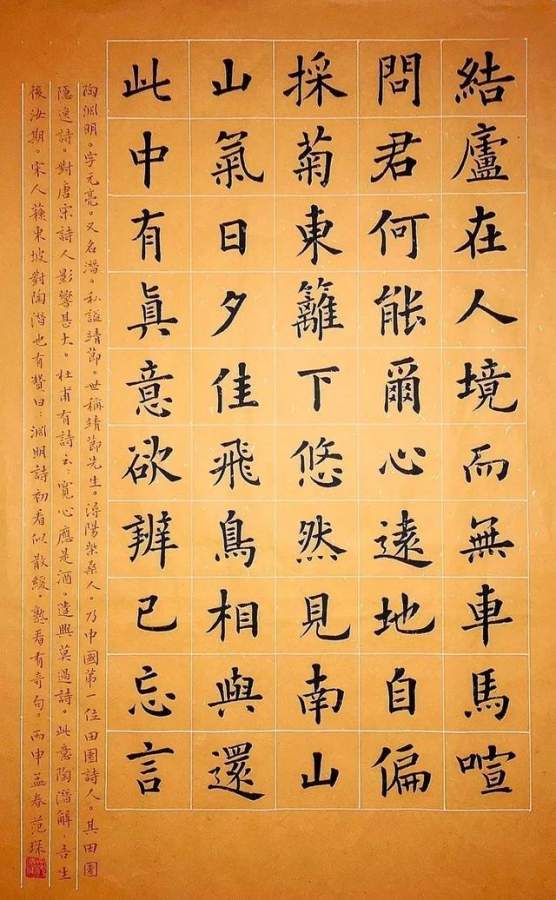 結廬在人境而無車馬喧
問君何能爾心遠地自偏
採菊東籬下悠然見南山
山氣日夕佳飛鳥相與還
此中有眞意欲辨已忘言
陶淵明。字元亮。又名潛。私謚靖節。世稱靖節先生。潯陽柴桑人。乃中國第一位田園詩人。其田園
隱逸詩。對唐宋詩人影響甚大。杜甫有詩云。寬心應是酒。遣興莫過詩。此意陶潛解。吾生
後汝期。宋人蘇東坡對陶潛也有贊曰：淵明詩初看似散緩。熟看有奇句。丙申孟春范琛